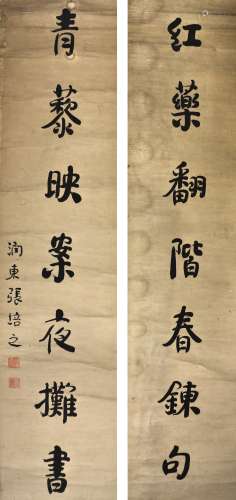 紅藥翻階春鍊句
青藜映案夜攤書
張培之